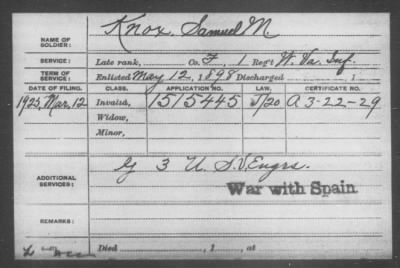 NAME OF SOLDIER: Knox, Samuel M.
SERVICE: Late rank, Co. F, 1 Reg't W. Va. Inf.
TERM OF SERVICE: Enlisted May 12, 1898 Discharged , 1
DATE OF FILING. CLASS. APPLICATION NO. LAW. CERTIFICATE NO.
1925, Mar. 12 Invalid, 1515445 J/20 A 3-22-29
Widow,
Minor,
ADDITIONAL SERVICES: G 3 U. S. V. Engrs.
War with Spain
REMARKS:
Died , 1 , at